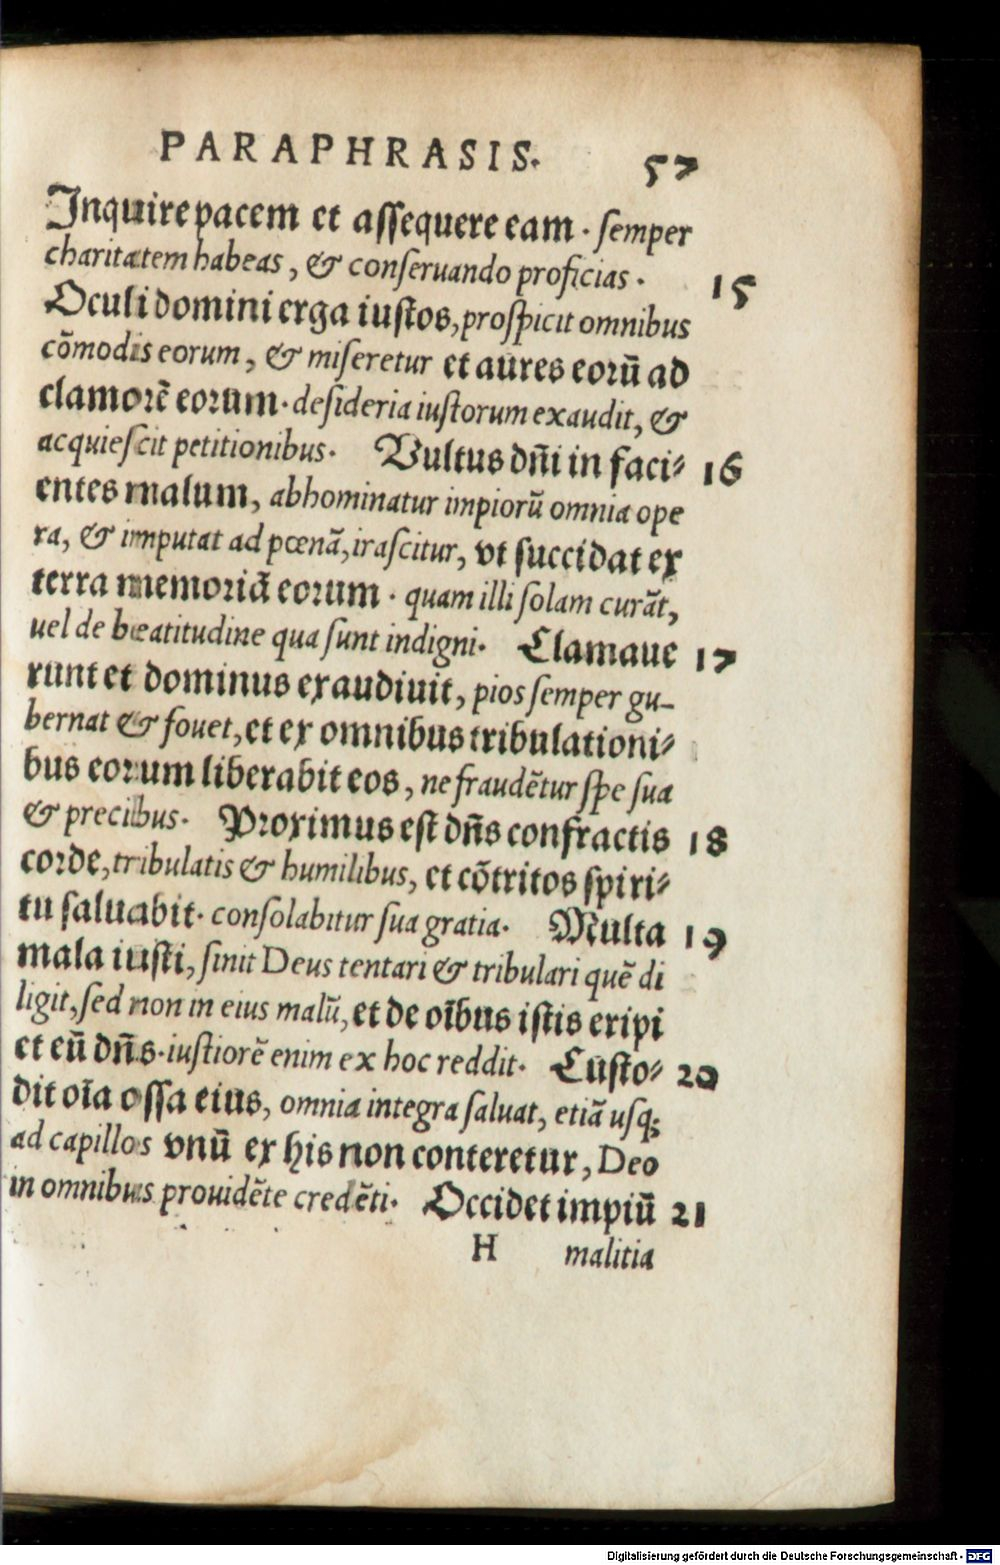 PARAPHRASIS. 57
Inquire pacem et assequere eam. semper
charitatem habeas, & conseruando proficias.
Oculi domini erga iustos, prospicit omnibus 15
cōmodis eorum, & miseretur et aures eorū ad
clamorē eorum. desideria iustorum exaudit, &
acquiescit petitionibus. Vultus dn̄i in faci- 16
entes malum, abhominatur impiorū omnia ope
ra, & imputat ad pœnā, irascitur, vt succidat ex
terra memoriā eorum. quam illi solam curāt,
uel de beatitudine qua sunt indigni. Clamaue 17
runt et dominus exaudiuit, pios semper gu-
bernat & fouet, et ex omnibus tribulationi-
bus eorum liberabit eos, ne fraudētur spe sua
& precibus. Proximus est dn̄s confractis 18
corde, tribulatis & humilibus, et cōtritos spiri-
tu saluabit. consolabitur sua gratia. Multa 19
mala iusti, sinit Deus tentari & tribulari quē di
ligit, sed non in eius malū, et de oībus istis eripi
et eū dn̄s. iustiorē enim ex hoc reddit. Custo- 20
dit oīa ossa eius, omnia integra saluat, etiā usq;
ad capillos vnū ex his non conteretur, Deo
in omnibus prouidēte credēti. Occidet impiū 21
H malitia
Digitalisierung gefördert durch die Deutsche Forschungsgemeinschaft - DFG